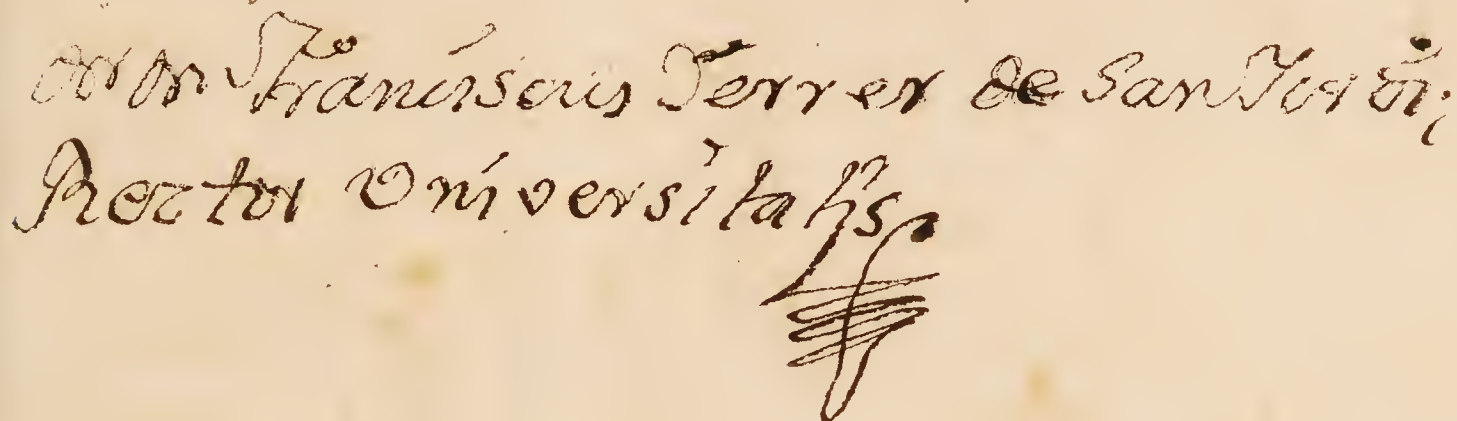 Franciscus Ferrer de San Jordi,
Rector Vniversitatis